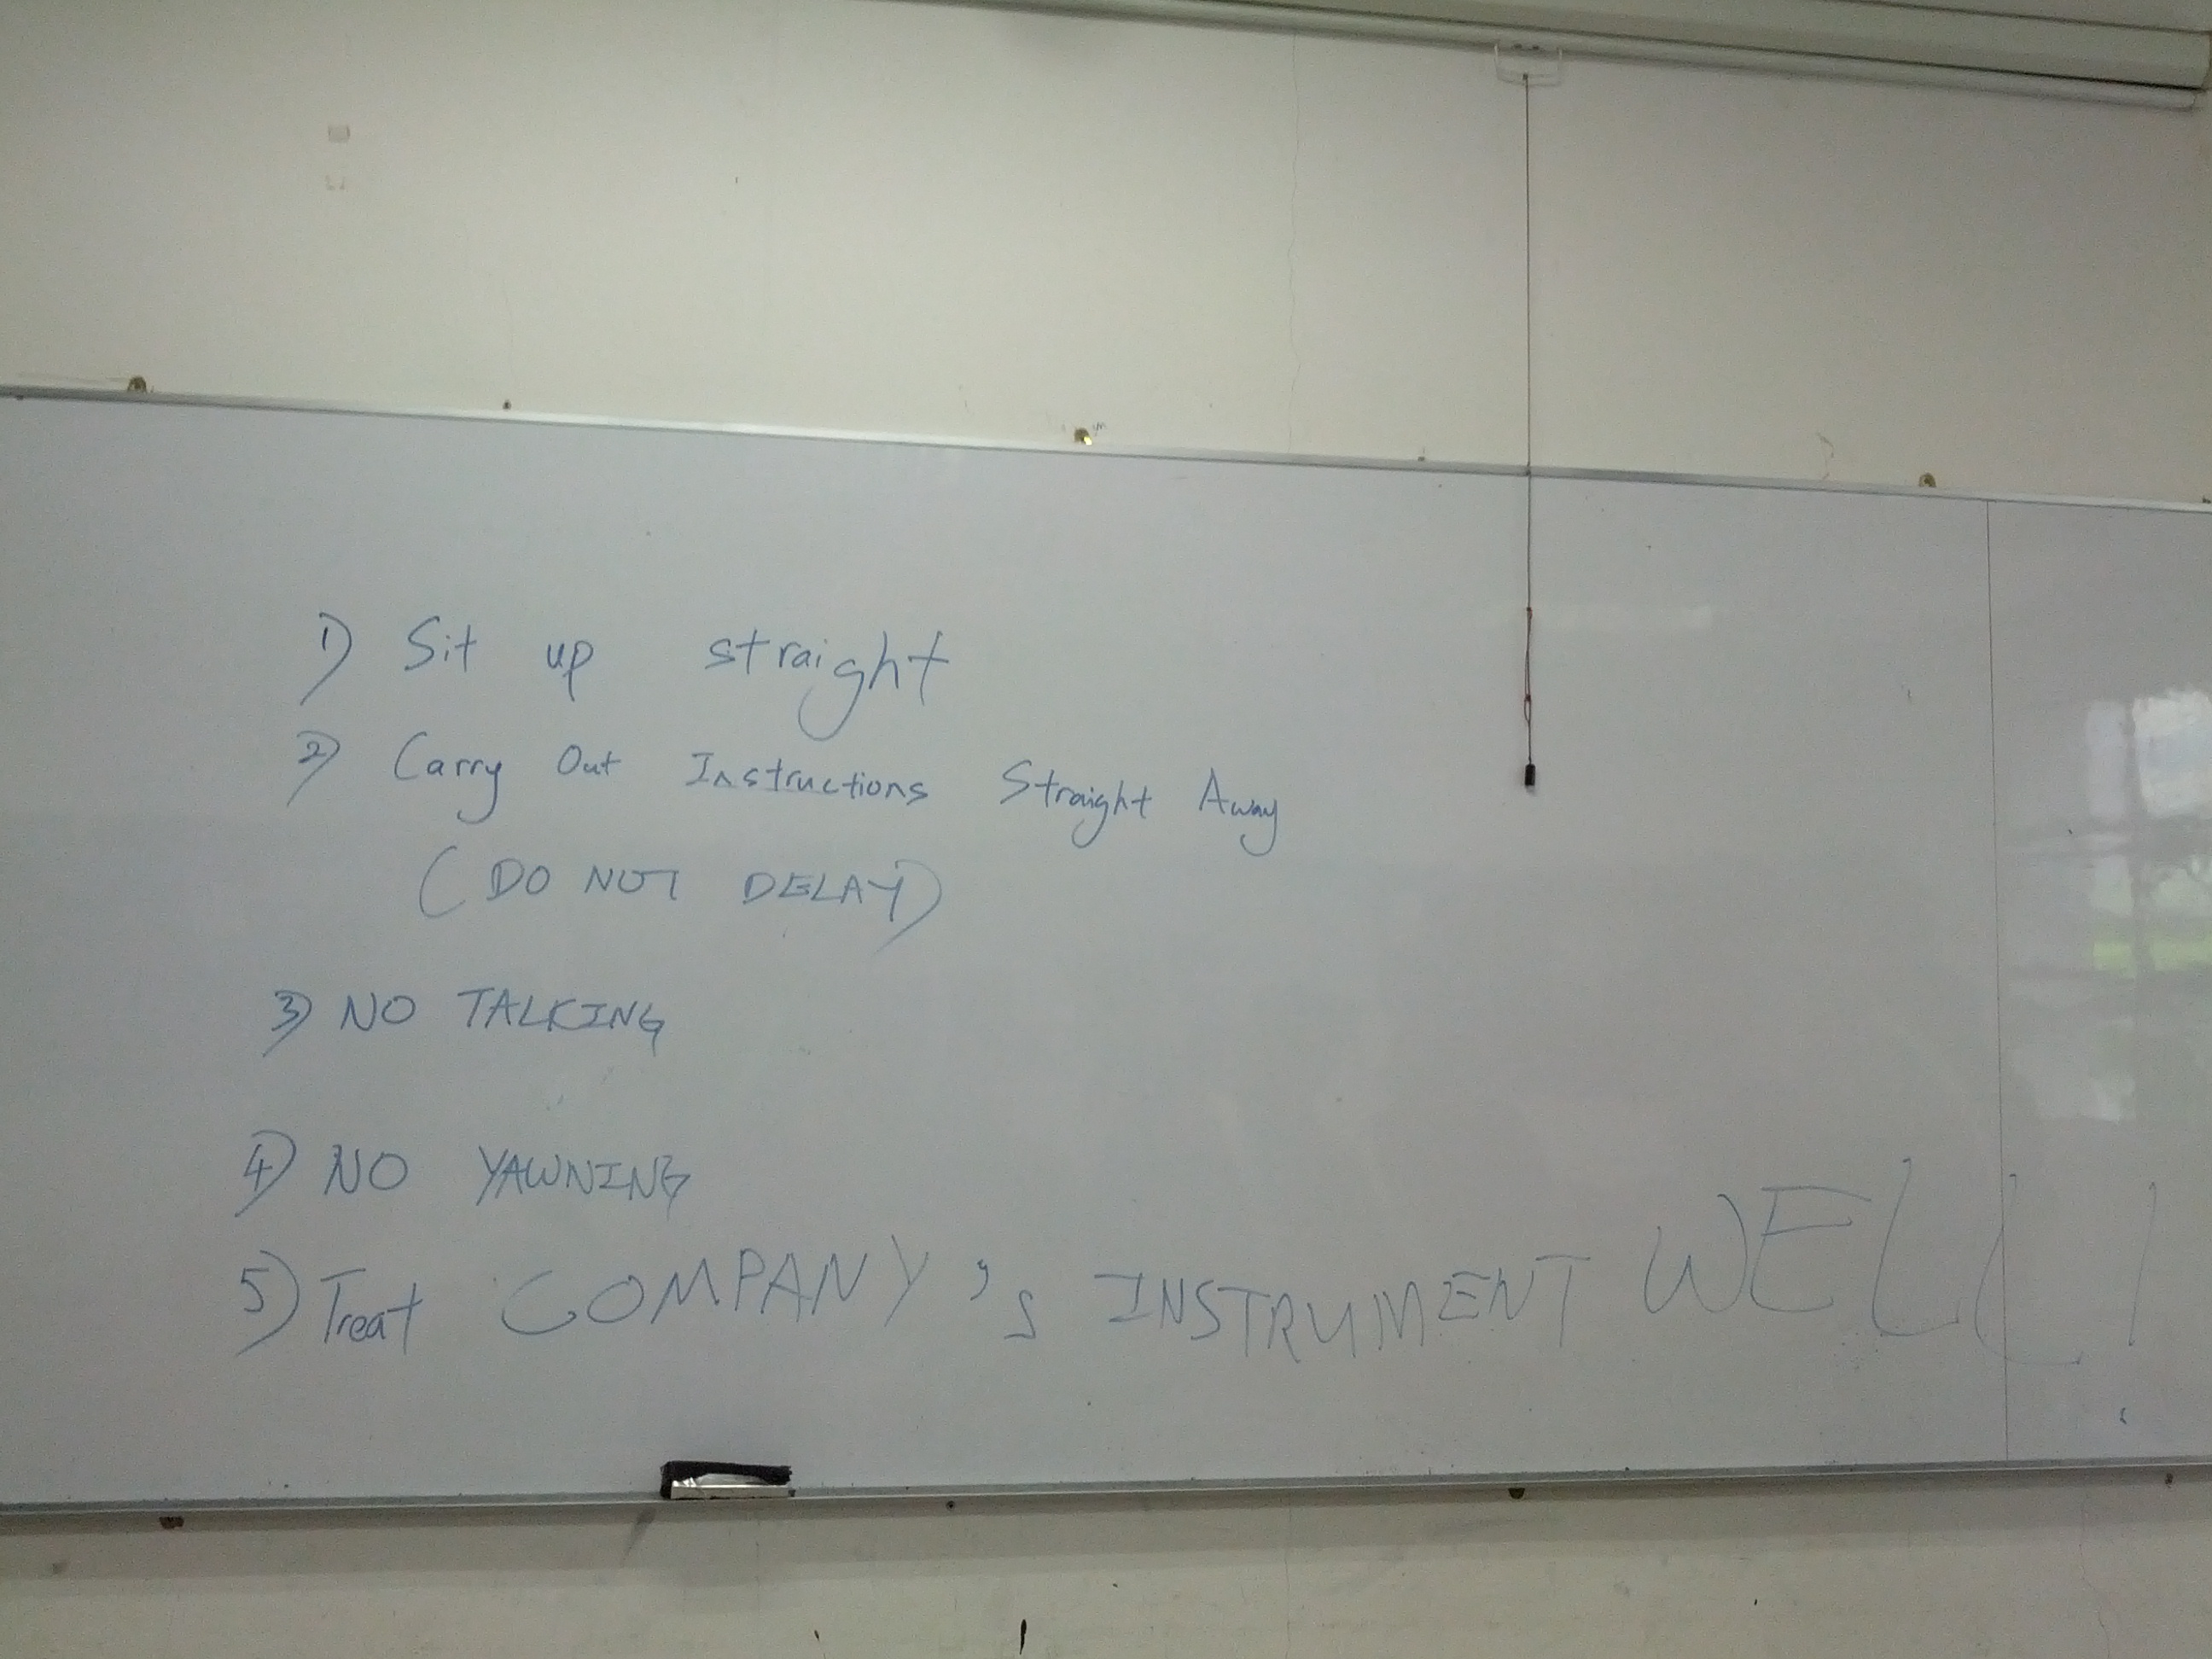 1) Sit up straight
2) Carry Out Instructions Straight Away
(DO NOT DELAY)
3) NO TALKING
4) NO YAWNING
5) Treat COMPANY's INSTRUMENT WELL!